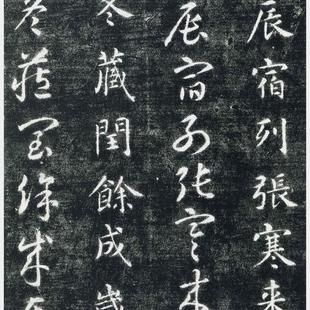 辰宿列張寒来
辰宿列張寒来
冬藏閏餘成歲
冬藏閏餘成